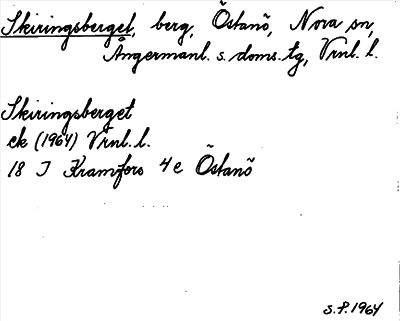 Skiringsberget, berg, Östanö, Nora sn,
Ångermanl. s. doms. tg, Vrnl. l.
Skiringsberget
ek (1964) Vrnl. l.
18 I Kramfors 4e Östanö
S.P. 1964